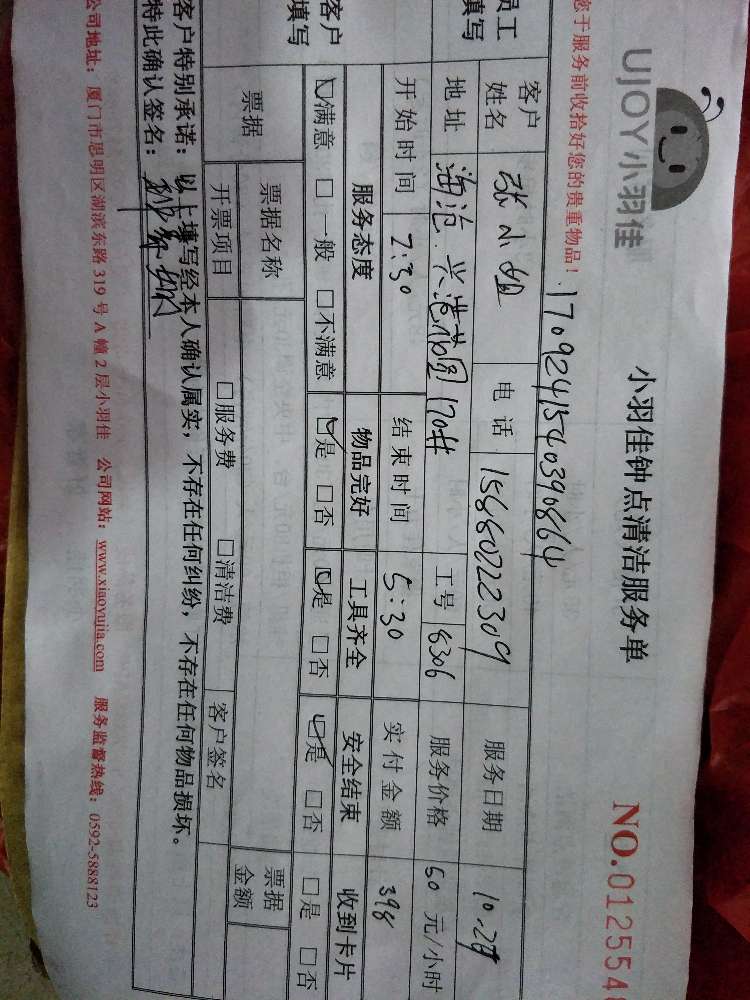 UJOY小羽佳
小羽佳钟点清洁服务单
NO.0125548
您于服务前收拾好您的贵重物品！
1709241540390864
员工填写
客户姓名 张小姐 电话 15880222309 服务日期 10-29
地址 海沧 兴港花园 170# 工号 8306 服务价格 50 元/小时
开始时间 2:30 结束时间 5:30 实付金额 398
客户填写
服务态度 物品完好 工具齐全 安全结束 收到卡片
☑满意 □一般 □不满意 ☑是 □否 ☑是 □否 ☑是 □否 □是 □否
票据 票据名称 票据金额
开票项目 □服务费 □清洁费 客户签名
客户特别承诺：以上填写经本人确认属实，不存在任何纠纷，不存在任何物品损坏。
特此确认签名：
公司地址：厦门市思明区湖滨东路 319 号 A 幢 2 层小羽佳 公司网站：www.xiaoyujia.com 服务监督热线：0592-5888123